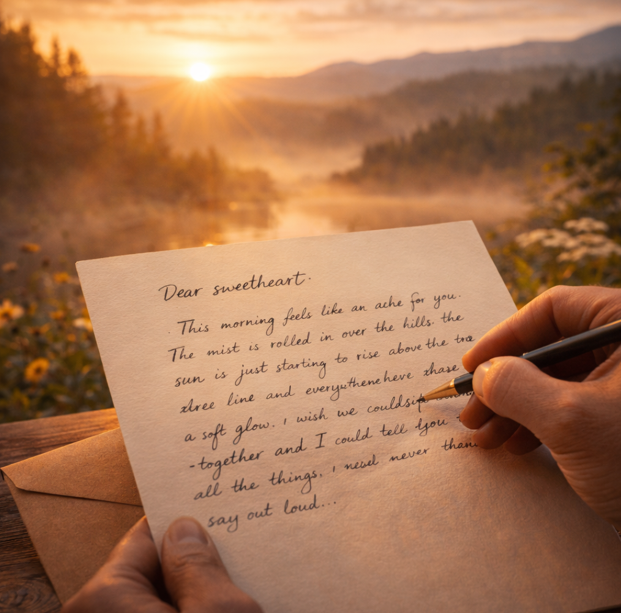 Dear sweetheart.
. This morning feels like an ache for you.
The mist is rolled in over the hills. the
sun is just starting to rise above the tra
line and
a soft glow. I wish we could
-together and I could tell you
all the things. I never than
say out loud...